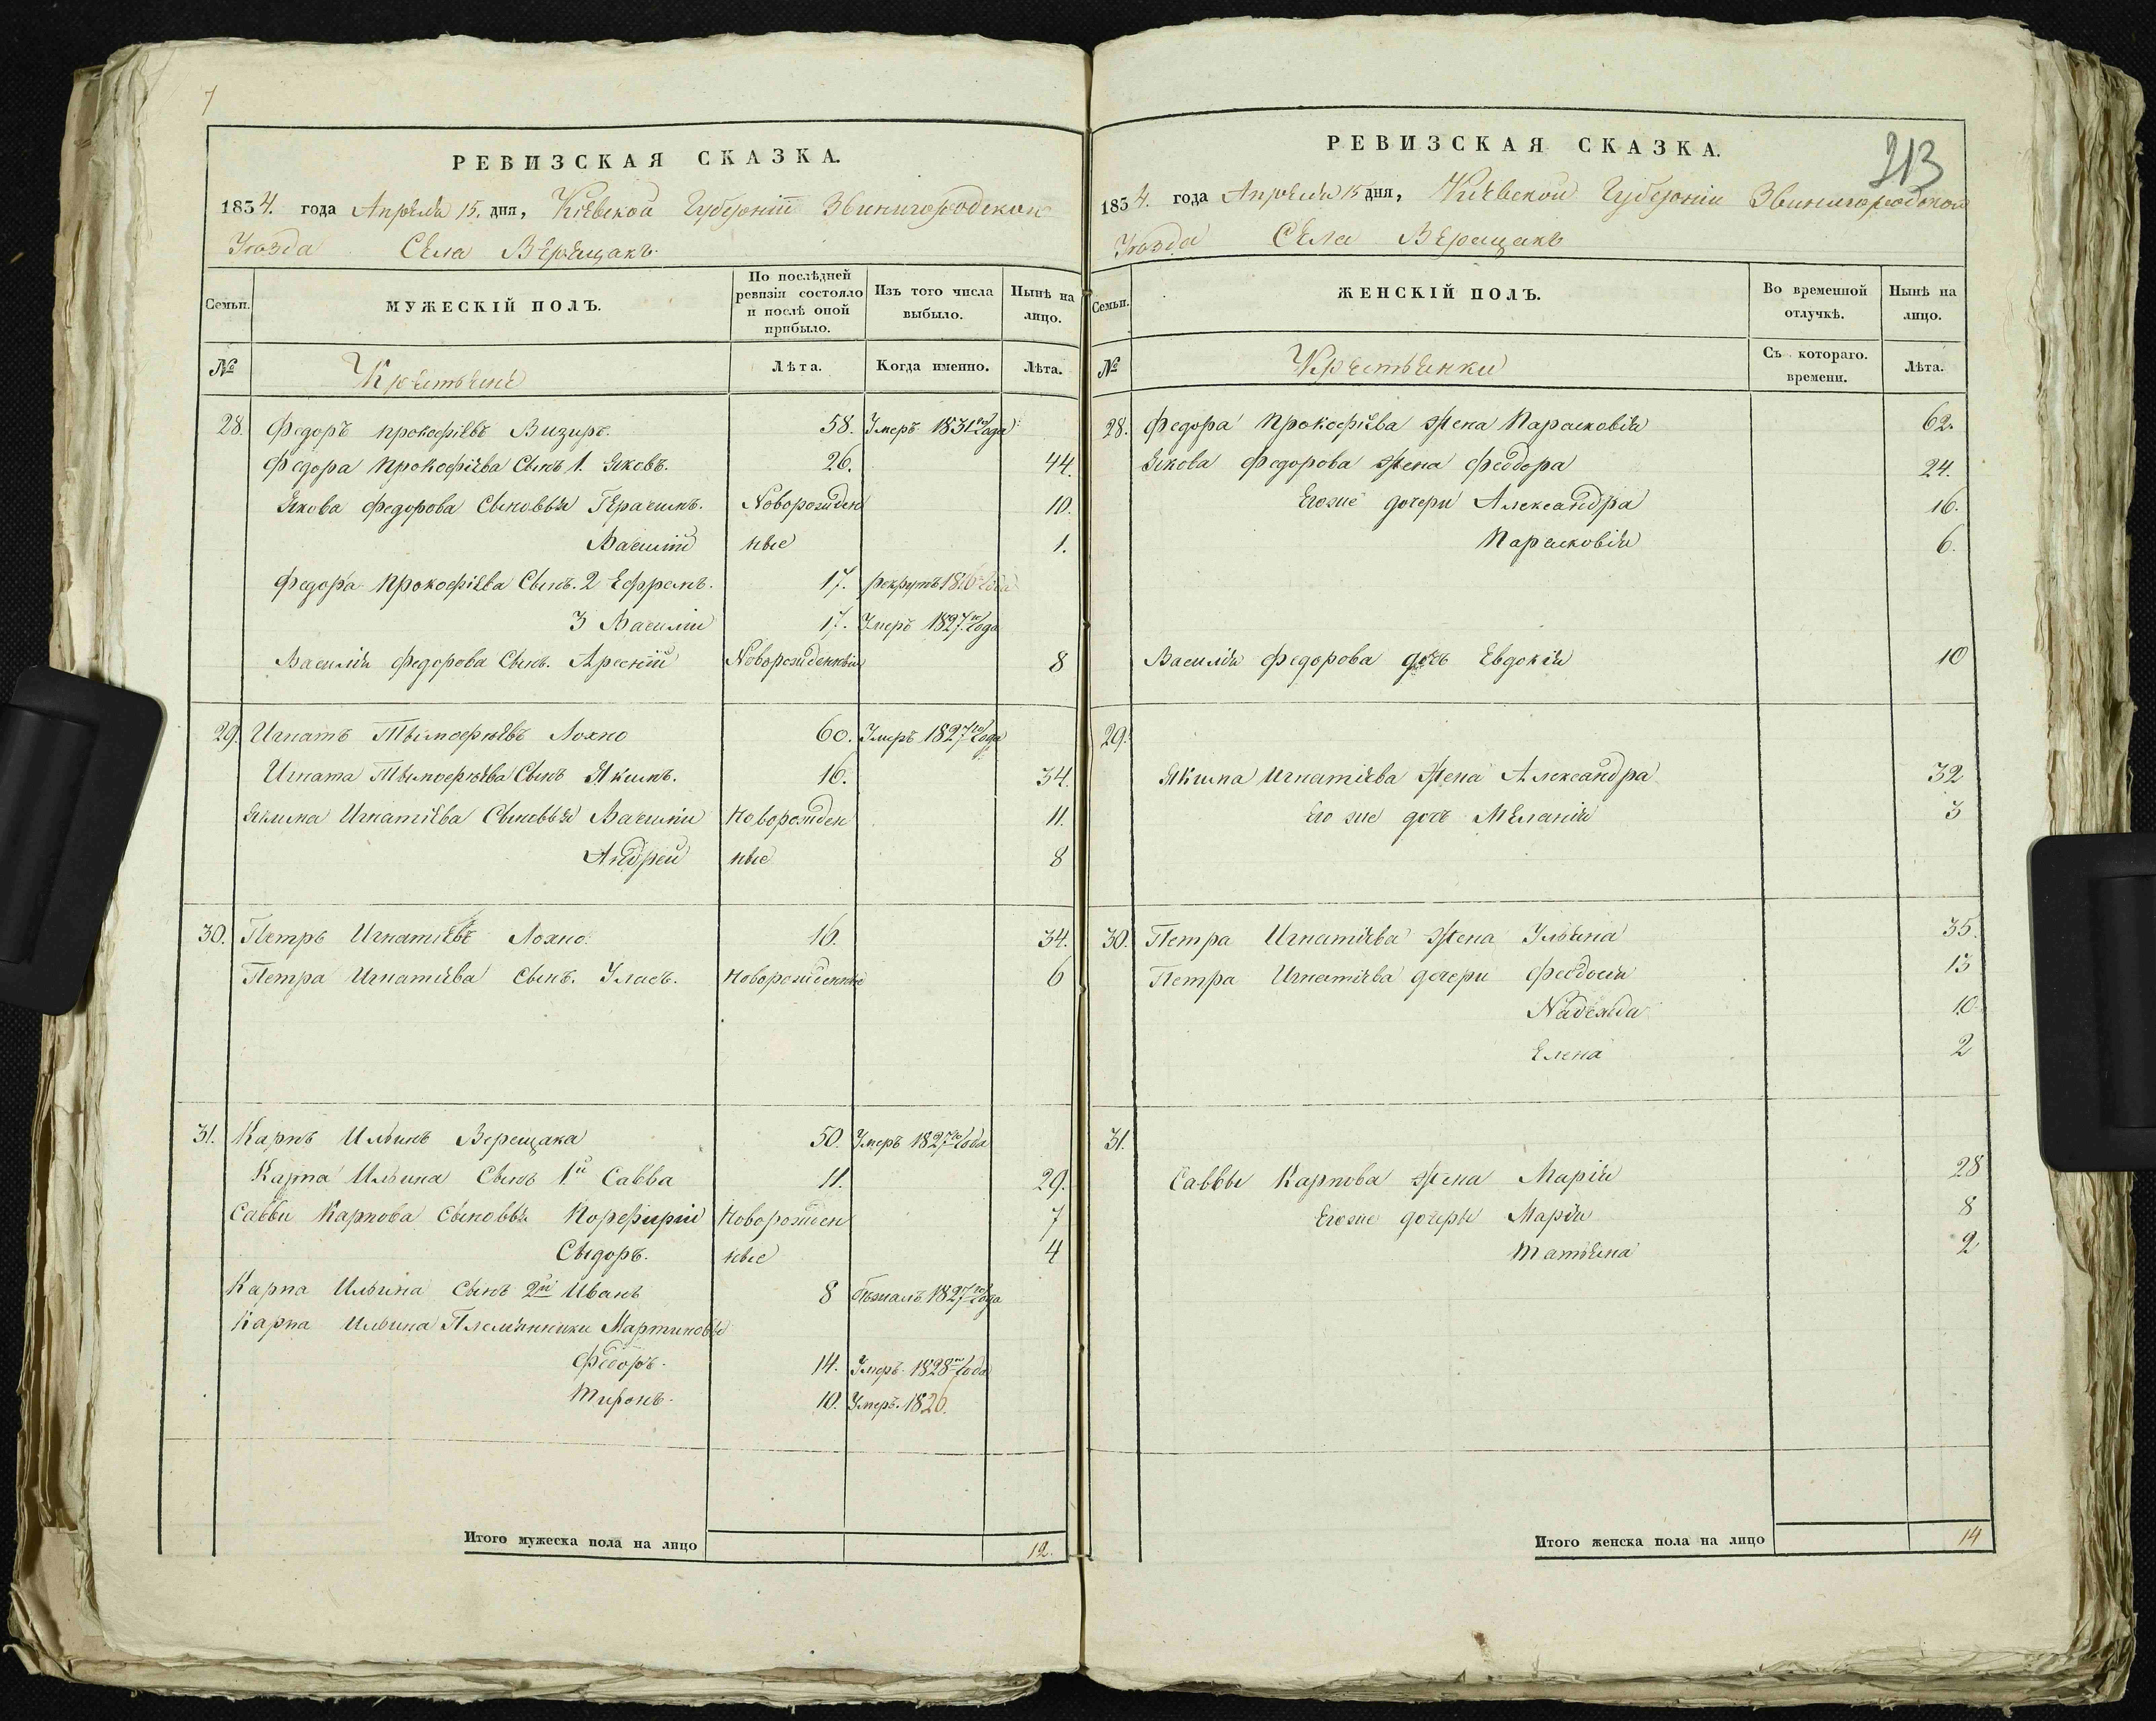 7
РЕВИЗСКАЯ СКАЗКА.
1834. года Апреля 15. дня, Кіевской Губерніи Звинигородской
Уѣзда Села Верещакъ.
Семьи.
МУЖЕСКІЙ ПОЛЪ.
По послѣдней ревизіи состояло и послѣ оной прибыло.
Изъ того числа выбыло.
Нынѣ на лицо.
№
Крестьяне
Лѣта.
Когда именно.
Лѣта.
28. Федоръ Прокофіевъ Визиръ. 58. Умеръ 1831го года
Федора Прокофіева Сынъ 1. Яковъ. 26. 44.
Якова Федорова Сыновья Герасимъ. Новорожден 10.
Василій ные 1.
Федора Прокофіева Сынъ. 2 Ефремъ. 17. рекрутъ 1816 года
3 Василій 17. Умеръ 1827го года
Василія Федорова Сынъ. Арсеній Новорожденный 8
29. Игнатъ Тымофѣевъ Лохно 60. Умеръ 1827го года
Игната Тымофѣева Сынъ Якимъ. 16. 34.
Якима Игнатіева Сыновья Василій Новорожден 11.
Андрей ные 8
30. Петръ Игнатіевъ Лохно. 16. 34.
Петра Игнатіева Сынъ. Уласъ. Новорожденный 6
31. Карпъ Ильинъ Верещака 50. Умеръ 1827го года
Карпа Ильина Сынъ 1й Савва 11. 29.
Саввы Карпова Сыновья Порефирій Новорожден 7
Сыдоръ. ные 4
Карпа Ильина Сынъ 2й Иванъ 8 бѣжалъ 1827го года
Карпа Ильина Племянники Мартиновы
Федоръ. 14. Умеръ. 1828го года
Миронъ. 10. Умеръ. 1826.
Итого мужеска пола на лицо 12.
213
РЕВИЗСКАЯ СКАЗКА.
1834. года Апреля 15 дня, Кіевской Губерніи Звинигородской
Уѣзда Села Верещакъ
Семьи.
ЖЕНСКІЙ ПОЛЪ.
Во временной отлучкѣ.
Нынѣ на лицо.
№
Крестьянки
Съ котораго. времени.
Лѣта.
28. Федора Прокофіева жена Парасковія 62.
Якова Федорова жена Феодора 24.
Егоже дочери Александра 16.
Парасковія 6.
Василія Федорова дочь Евдокія 10
29.
Якима Игнатіева жена Александра 32
Его же дочь Меланія 3
30. Петра Игнатіева жена Ульяна 35.
Петра Игнатіева дочери Феодосія 13
Надежда 10
Елена 2
31.
Саввы Карпова жена Марія 28
Егоже дочеры Марія 8
Татьяна 2
Итого женска пола на лицо 14